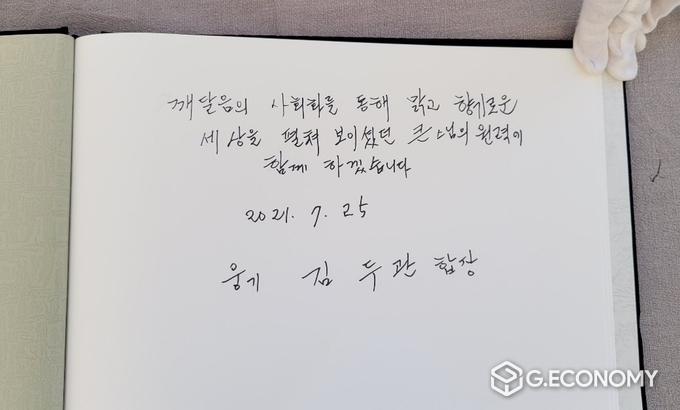 깨달음의 사회화를 통해 맑고 향기로운
세상을 펼쳐 보이셨던 큰스님의 원력이
함께 하겠습니다
2021. 7. 25
웅기 김두관 합장
G.ECONOMY